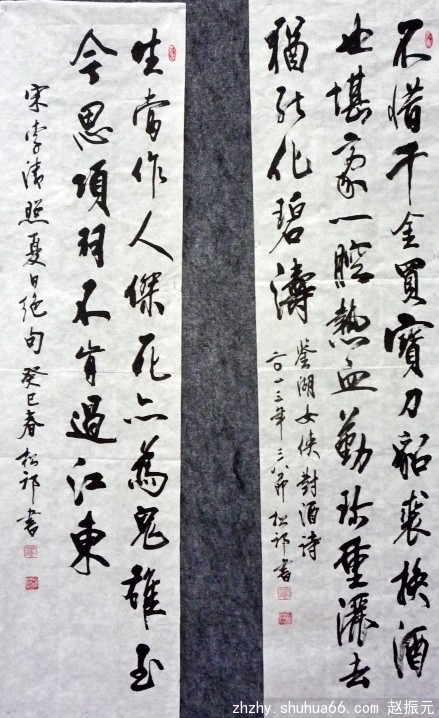 不惜千金買寶刀貂裘換酒
也堪豪一腔熱血勤珍重灑去
猶能化碧濤
鉴湖女侠對酒詩
二〇一三年三八節 松祁書
生當作人傑死亦為鬼雄至
今思項羽不肯過江東
宋李清照夏日绝句 癸巳春 松祁書
zhzhy.shuhua66.com 赵振元